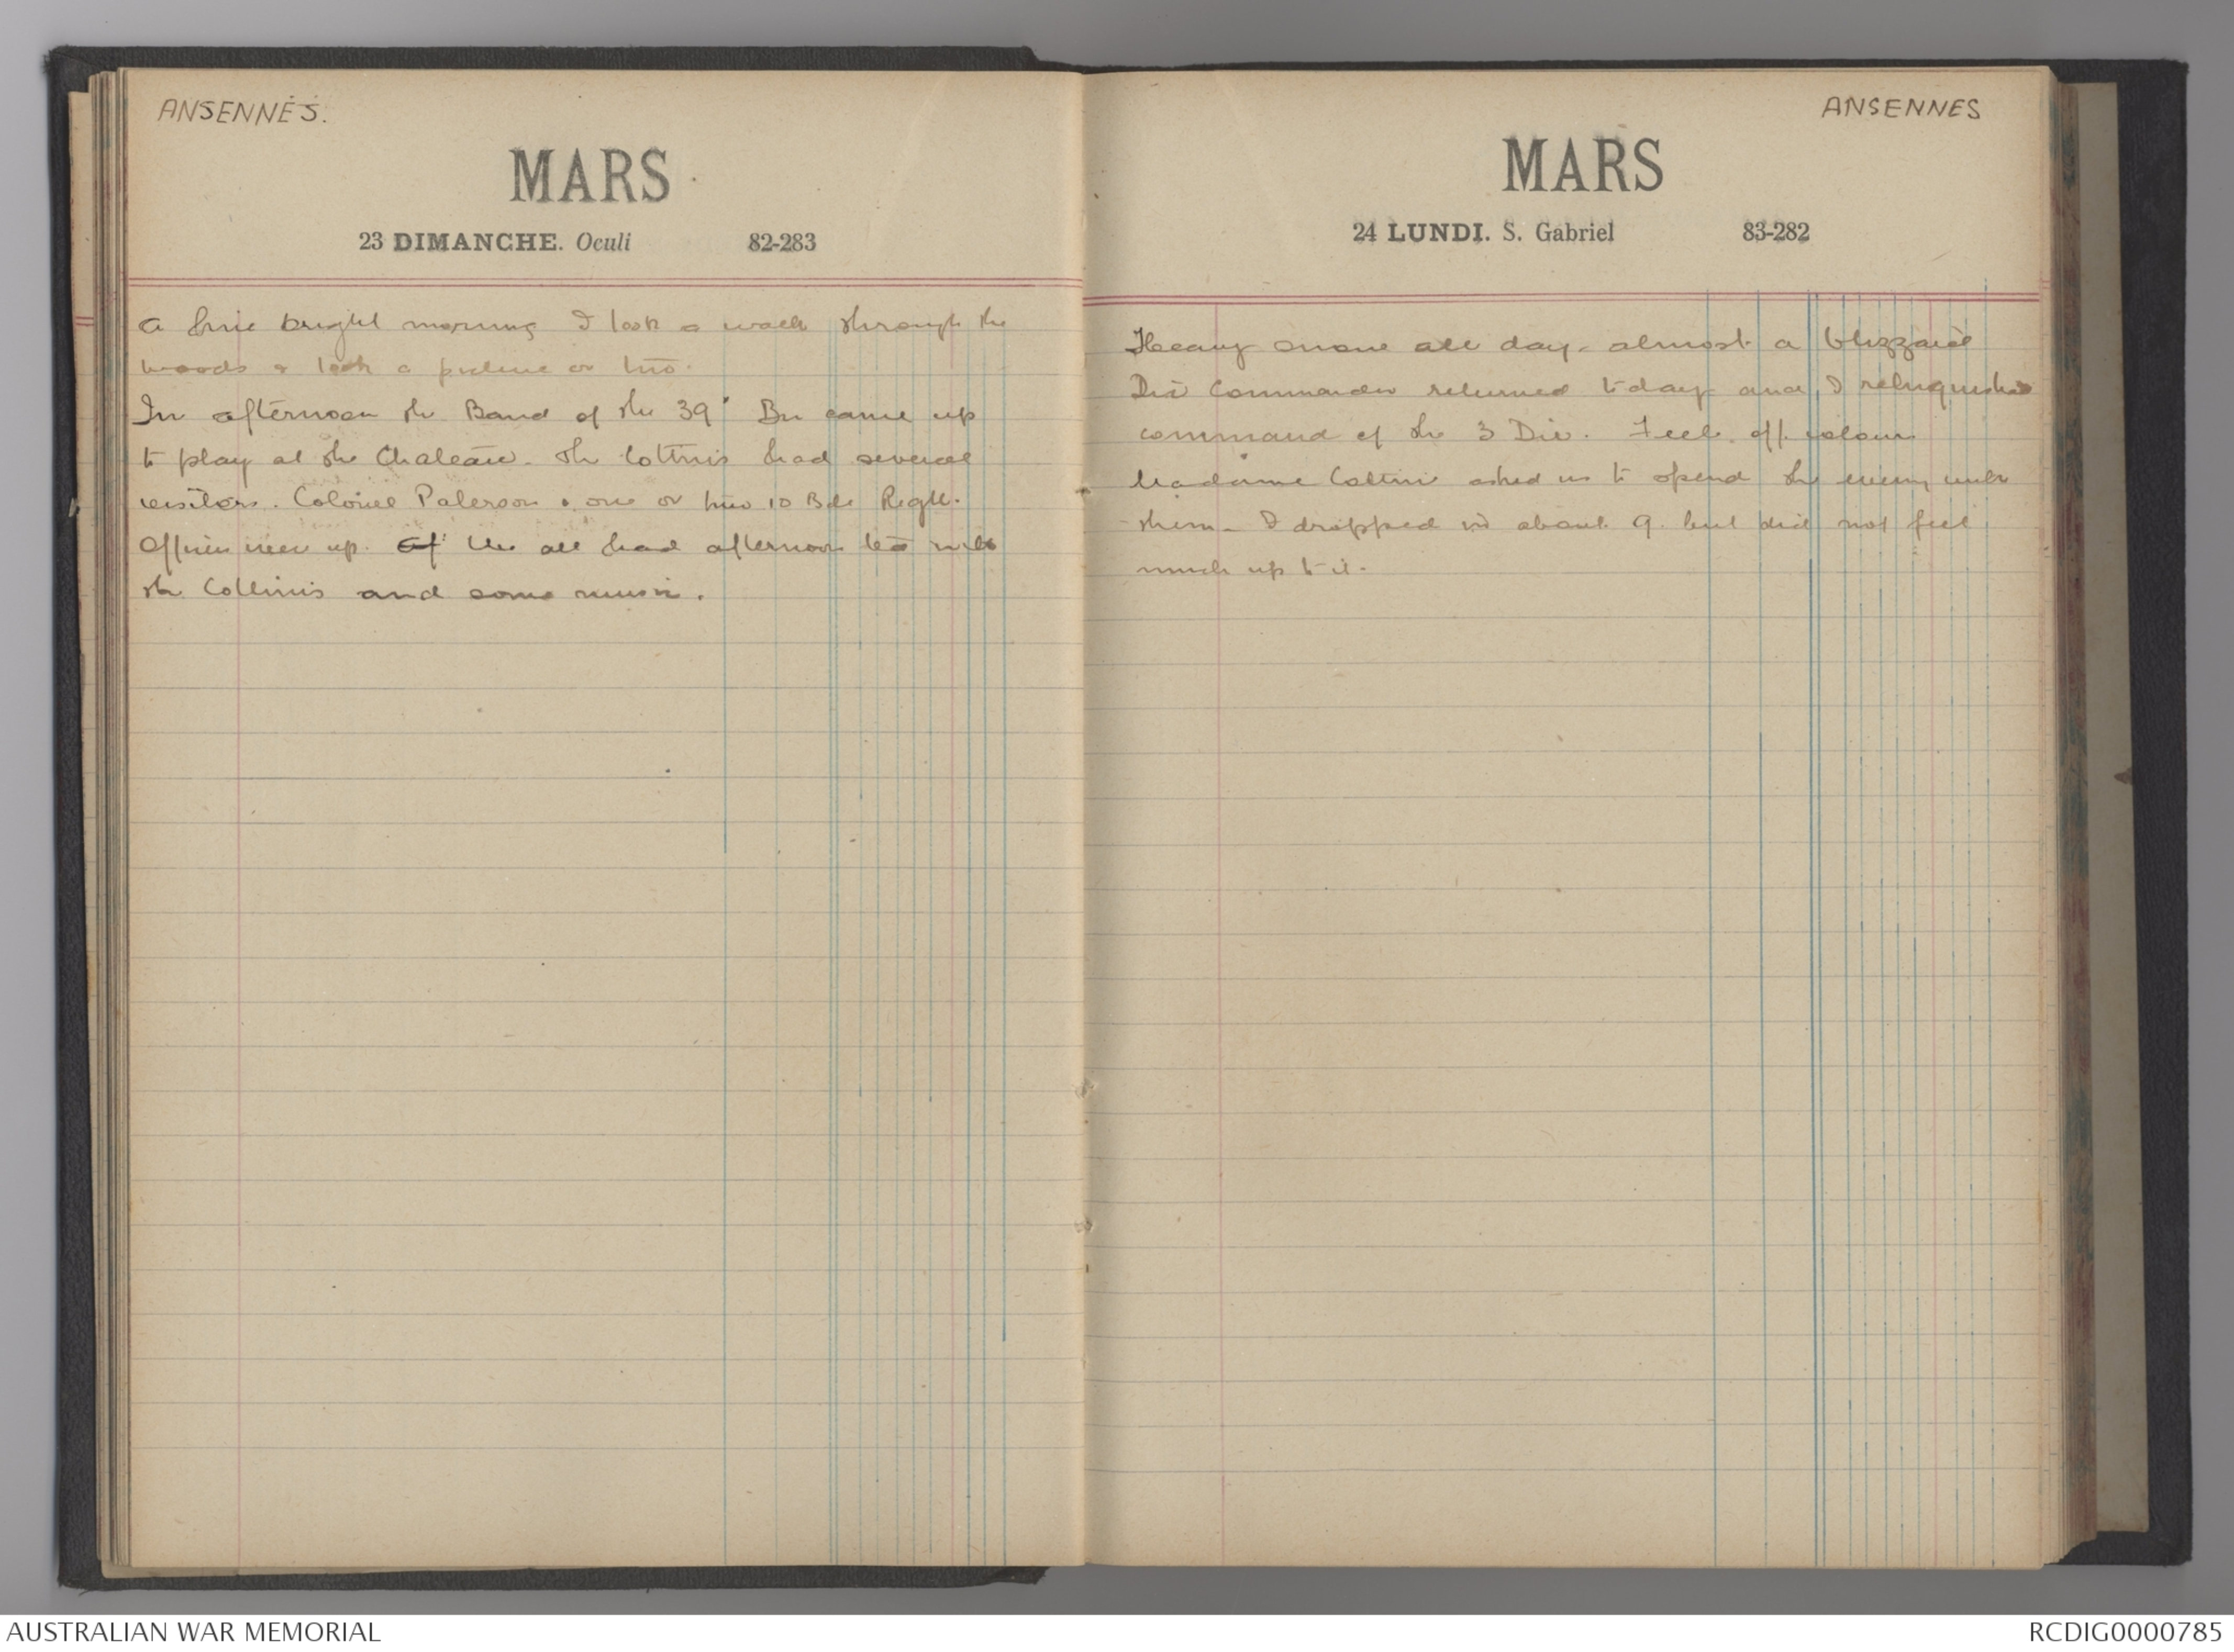 ANSENNES.
MARS
23 DIMANCHE. Oculi 82-283
A fine bright morning I took a walk through the
woods & took a picture or two.
In afternoon the Band of the 39th Bn came up
to play at the Chateau. The Cottinis had several
visitors. Colonel Paterson & one or two 10 Bde Regtl.
Officers were up. We all had afternoon tea with
the Cottinis and some music.
ANSENNES
MARS
24 LUNDI. S. Gabriel 83-282
Heavy snow all day - almost a blizzard
Div Commander returned today and I relinquished
command of the 3 Div. Feel off colour
Madame Cottini asked us to spend the evening with
them - I dropped in about 9. but did not feel
much up to it.
AUSTRALIAN WAR MEMORIAL
RCDIG0000785